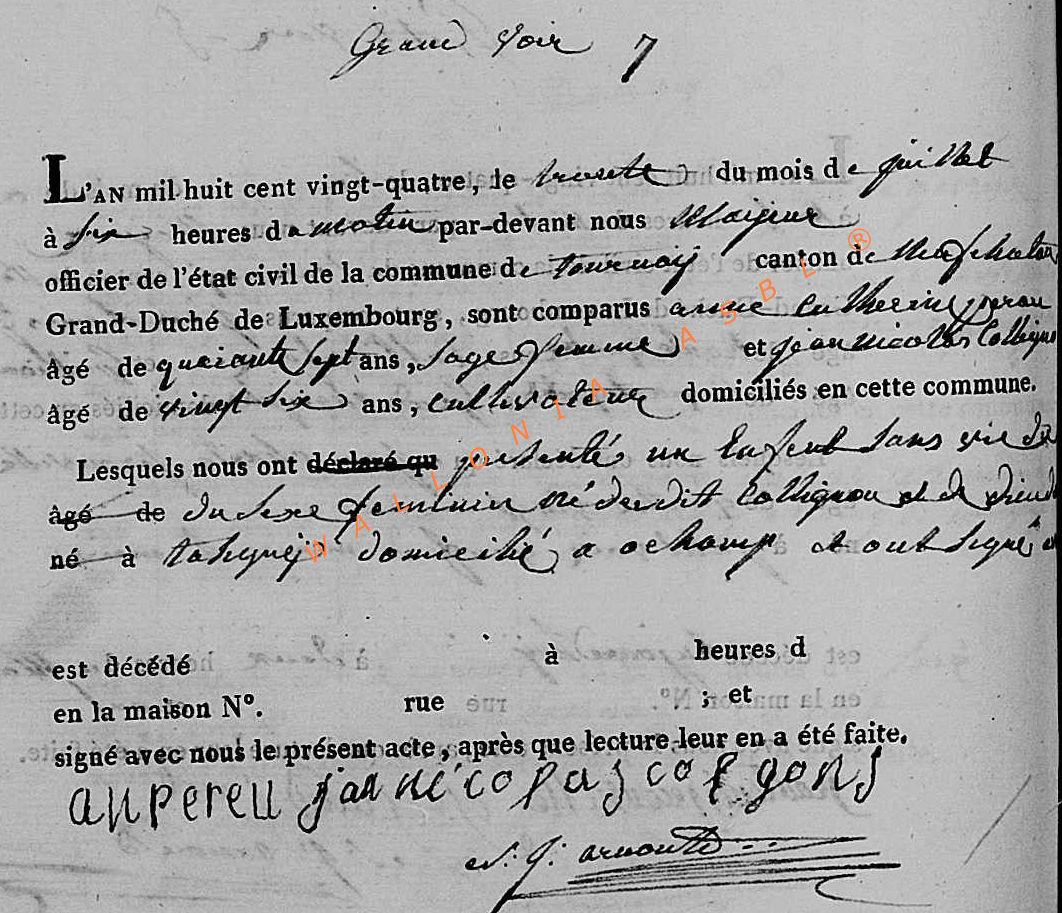 Grand Voir 7
L'AN mil huit cent vingt-quatre, le trente du mois de juillet
à six heures du matin par-devant nous Maijeur
officier de l'état civil de la commune de tournay canton de Neufchateau
Grand-Duché de Luxembourg, sont comparus anne catherine perau
âgé de quarante sept ans, sage femme et jean nicolas Collignon
âgé de vingt six ans, cultivateur domiciliés en cette commune.
Lesquels nous ont déclaré qu presenté un Enfent sans vie
âgé de du sexe feminin né Collignon et de
né à domicilié a ochamp et ont signé
est décédé à heures d
en la maison N°. rue ; et
signé avec nous le présent acte, après que lecture leur en a été faite.
an pereu jan nécolas colgons
arnould
WALLONIA ASBL ®